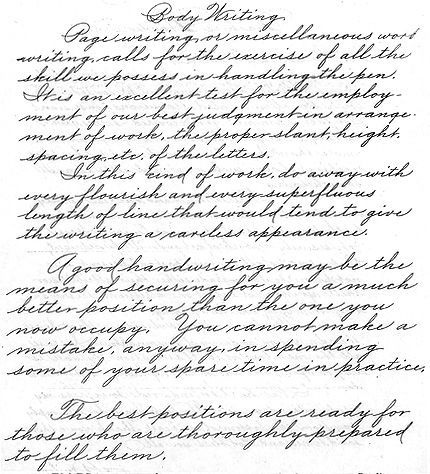 Body Writing
Page writing, or miscellaneous word
writing, calls for the exercise of all the
skill we possess in handling the pen.
It is an excellent test for the employ-
ment of our best judgment in arrange-
ment of work, the proper slant, height,
spacing, etc. of the letters.
In this kind of work, do away with
every flourish and every superfluous
length of line that would tend to give
the writing a careless appearance.
A good handwriting may be the
means of securing for you a much
better position than the one you
now occupy. You cannot make a
mistake, anyway, in spending
some of your spare time in practice.
The best positions are ready for
those who are thoroughly prepared
to fill them.